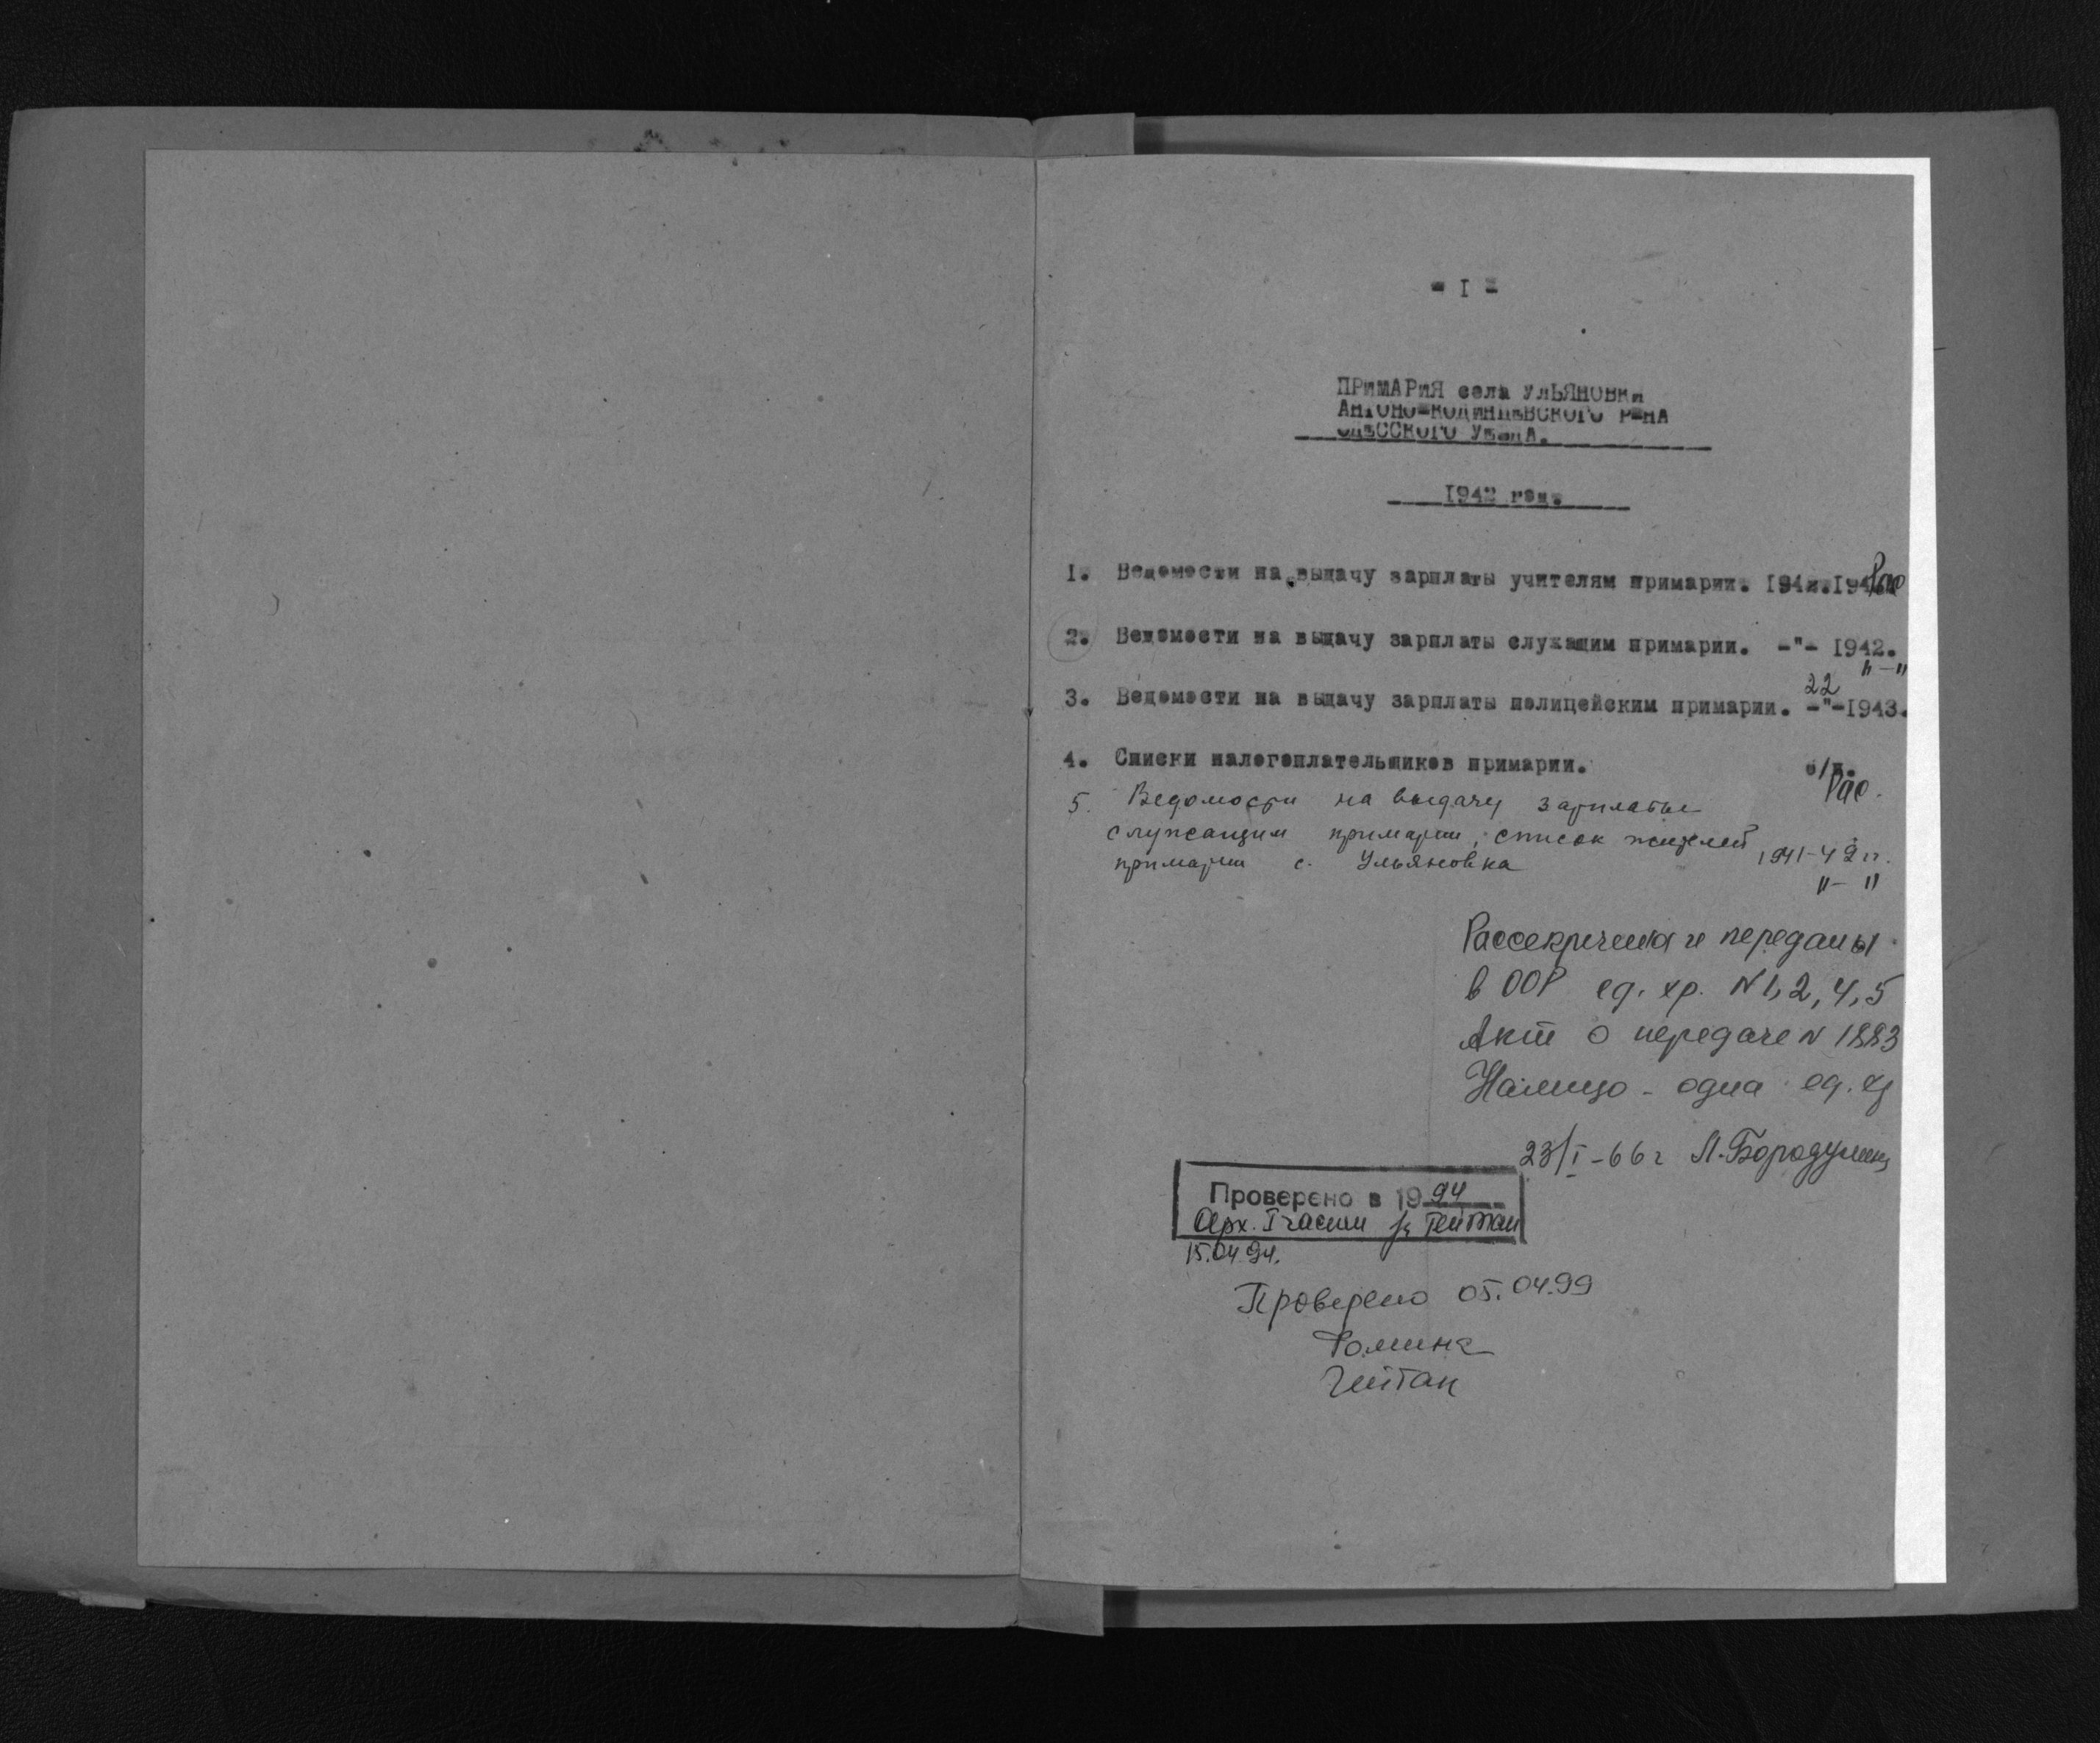 - I -
ПРИМАРИЯ села УЛЬЯНОВКИ
АНТОНО-КОДИНЦЕВСКОГО Р-НА
ОДЕССКОГО УЕЗДА.
1942 год.
1. Ведомости на выдачу зарплаты учителям примарии. Рас
2. Ведомости на выдачу зарплаты служащим примарии. -"- 1942.
"-"
22
3. Ведомости на выдачу зарплаты полицейским примарии. -"-1943.
4. Списки налогоплательщиков примарии.
Рас.
5. Ведомости на выдачу зарплаты
служащим примарии, список жителей
примарии с. Ульяновка 1941-42 гг.
"-"
Рассекречена и переданы
в ООФ ед. хр. N 1, 2, 4, 5
Акт о передаче N 1883
Налицо - одна ед. хр
23/I-66 г Л. Бородулина
Проверено в 1994
Арх. I части Гейтан
15.04.94.
Проверено 05.04.99
Фомина
Гейтан